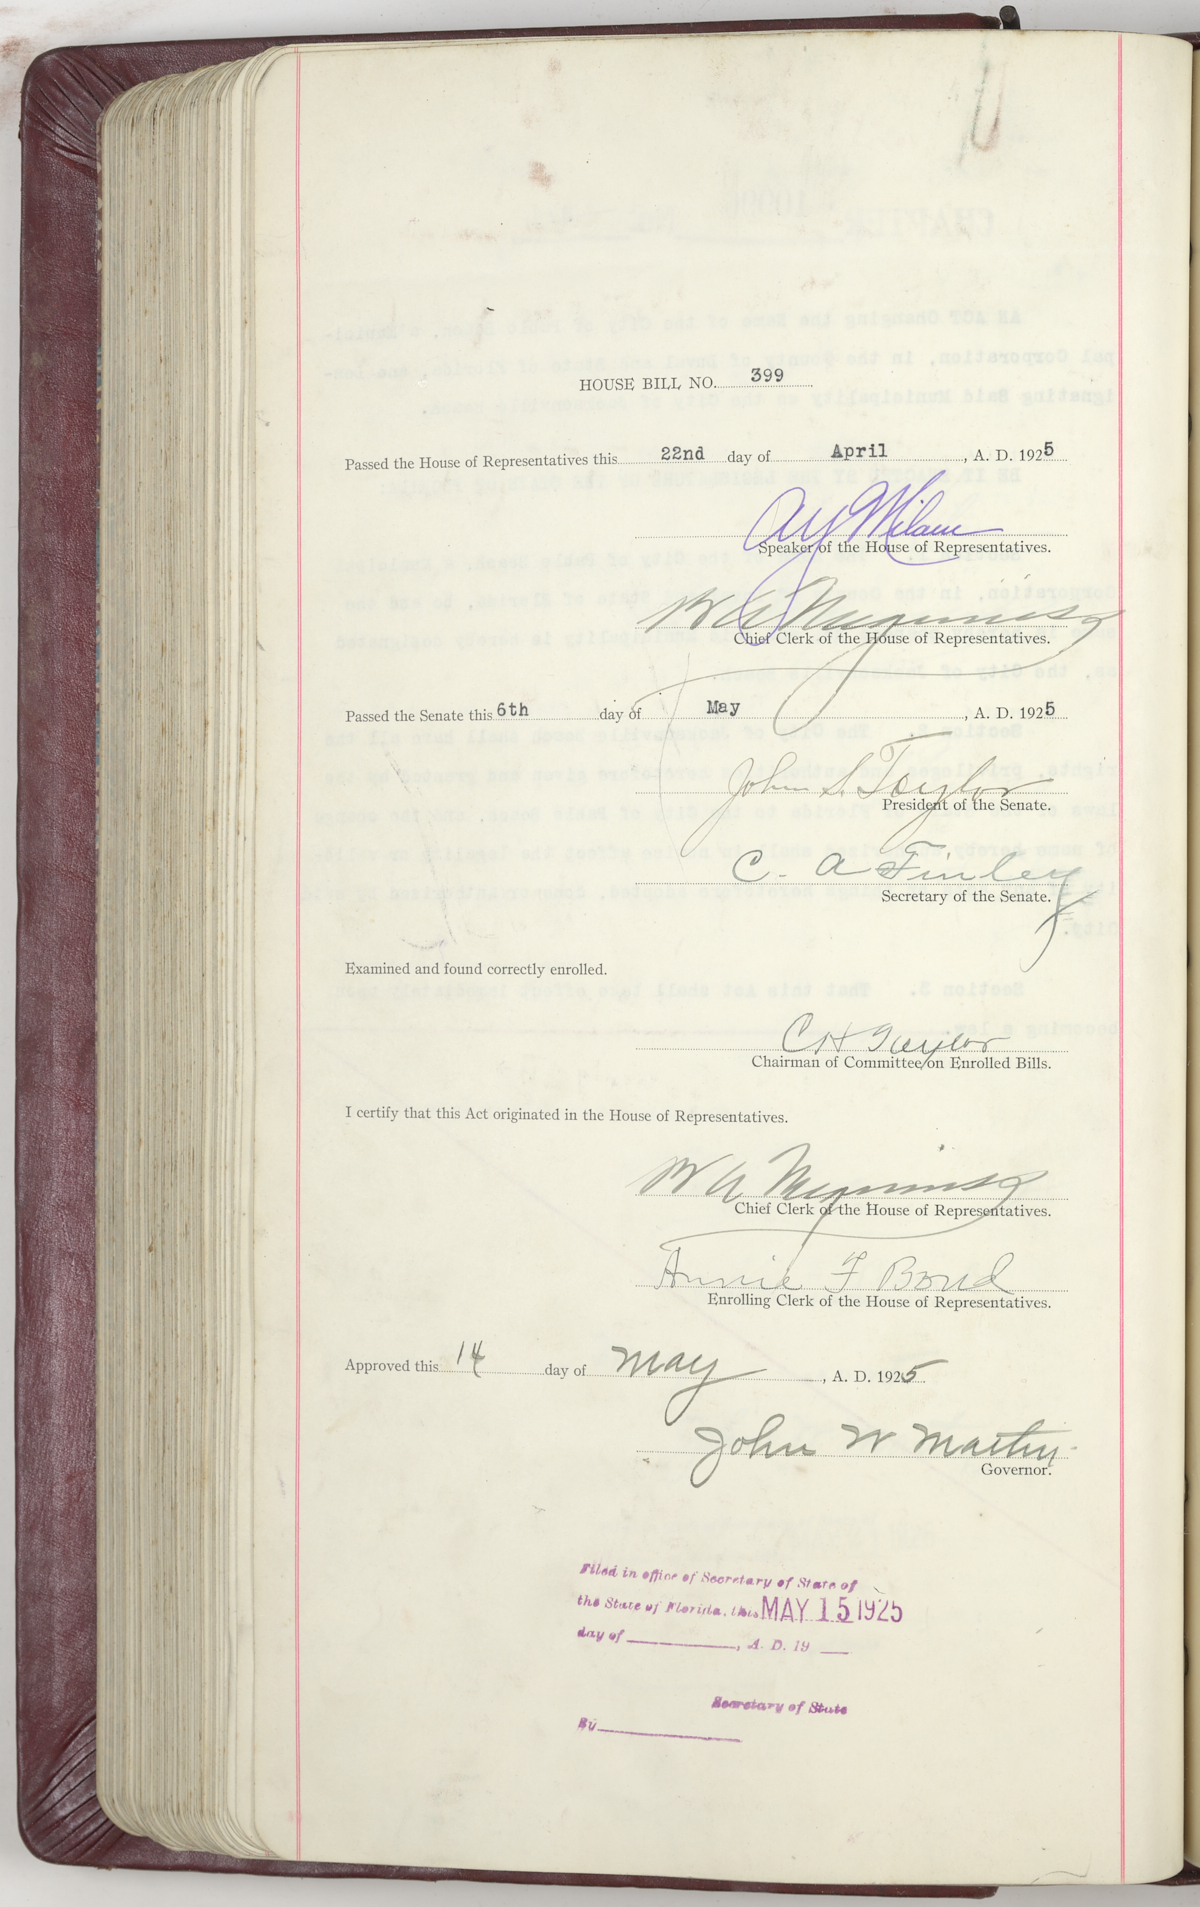 HOUSE BILL NO. 399
Passed the House of Representatives this 22nd day of April, A. D. 1925
A Y Milam
Speaker of the House of Representatives.
Chief Clerk of the House of Representatives.
Passed the Senate this 6th day of May, A. D. 1925
John S. Taylor
President of the Senate.
C. A Finley
Secretary of the Senate.
Examined and found correctly enrolled.
C H Taylor
Chairman of Committee on Enrolled Bills.
I certify that this Act originated in the House of Representatives.
Chief Clerk of the House of Representatives.
Annie F Bond
Enrolling Clerk of the House of Representatives.
Approved this 14 day of May, A. D. 1925
John W Martin
Governor.
Filed in office of Secretary of State of
the State of Florida, this MAY 15 1925
day of , A. D. 19
Secretary of State
By